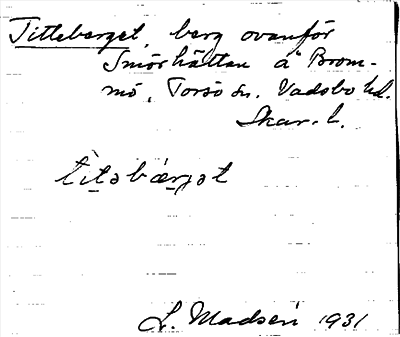 Titteberget, berg ovanför
Smörhättan å Brom-
mö, Torsö sn. Vadsbo hd.
Skar. l.
titəbærjət
L. Madsén 1931